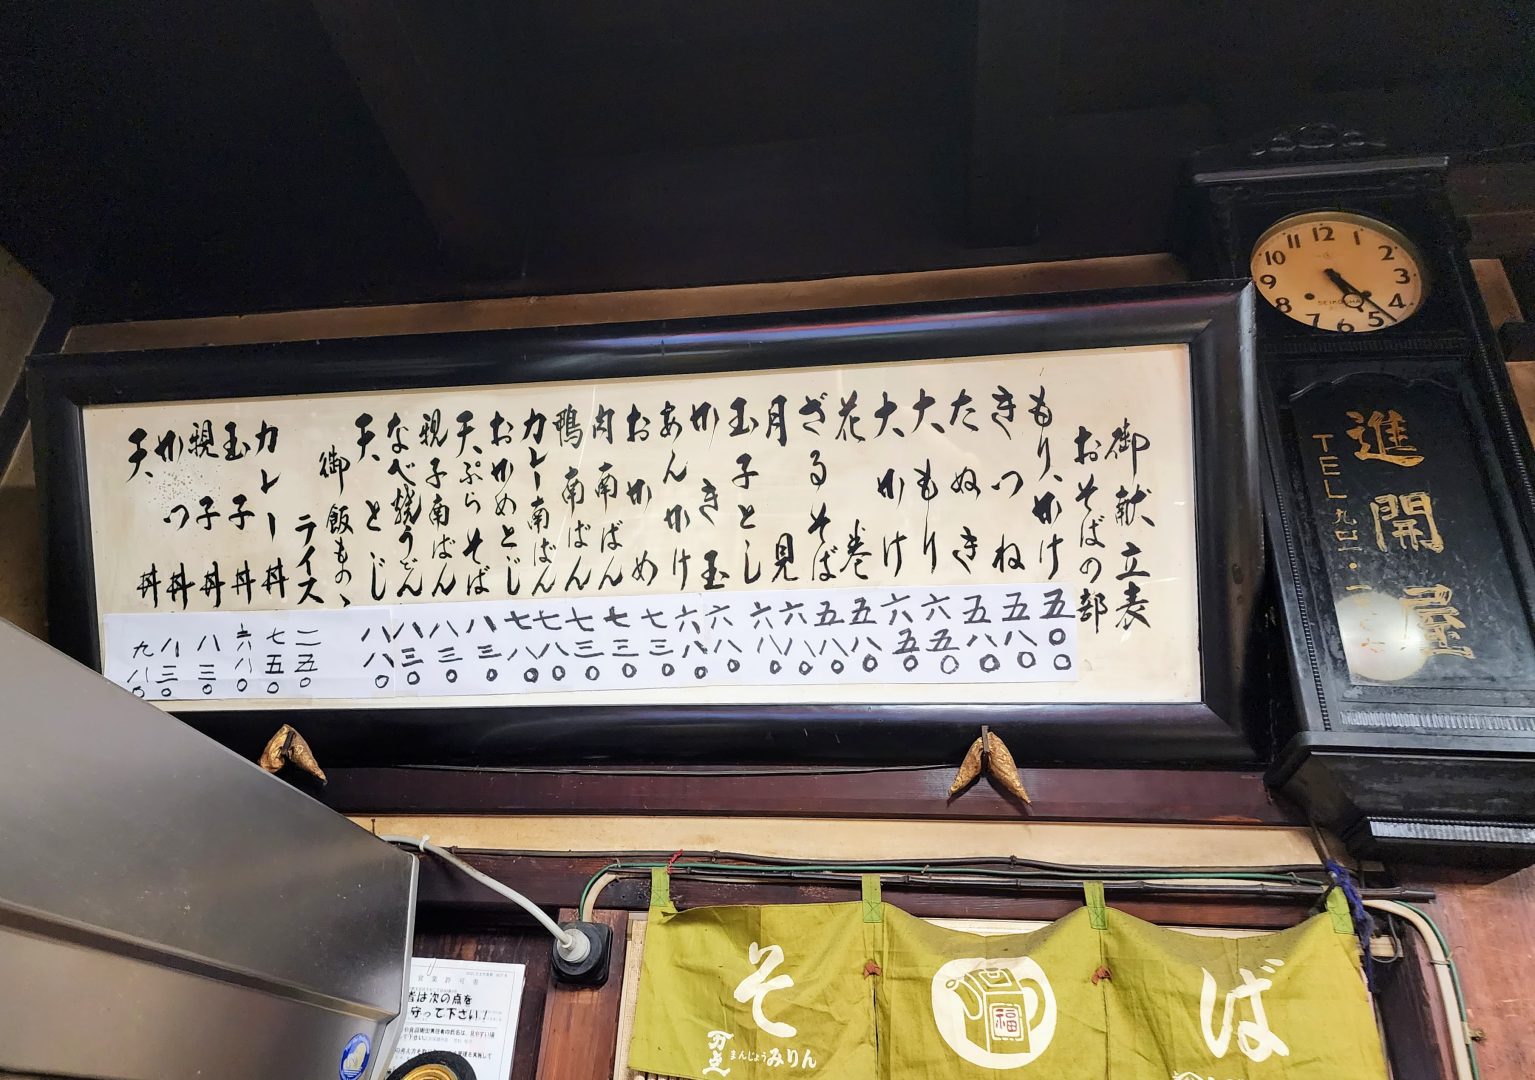 御献立表
おそばの部
もり、かけ 五〇〇
きつね 五八〇
たぬき 五八〇
大もり 六五〇
大かけ 六五〇
花巻 五八〇
ざるそば 五八〇
月見 六八〇
玉子とじ 六八〇
かき玉 六八〇
あんかけ 六八〇
おかめ 七三〇
肉南ばん 七三〇
鴨南ばん 七三〇
カレー南ばん 七八〇
おかめとじ 七八〇
天ぷらそば 八三〇
親子南ばん 八三〇
なべ焼うどん 八三〇
天とじ 八八〇
御飯もの、
ライス 二五〇
カレー丼 七五〇
玉子丼 六八〇
親子丼 八三〇
かつ丼 八三〇
天丼 九八〇
12 1 2 3 4 5 6 7 8 9 10 11
進開屋
TEL
そば
福
万上
まんじょうみりん
は次の点を
守って下さい!